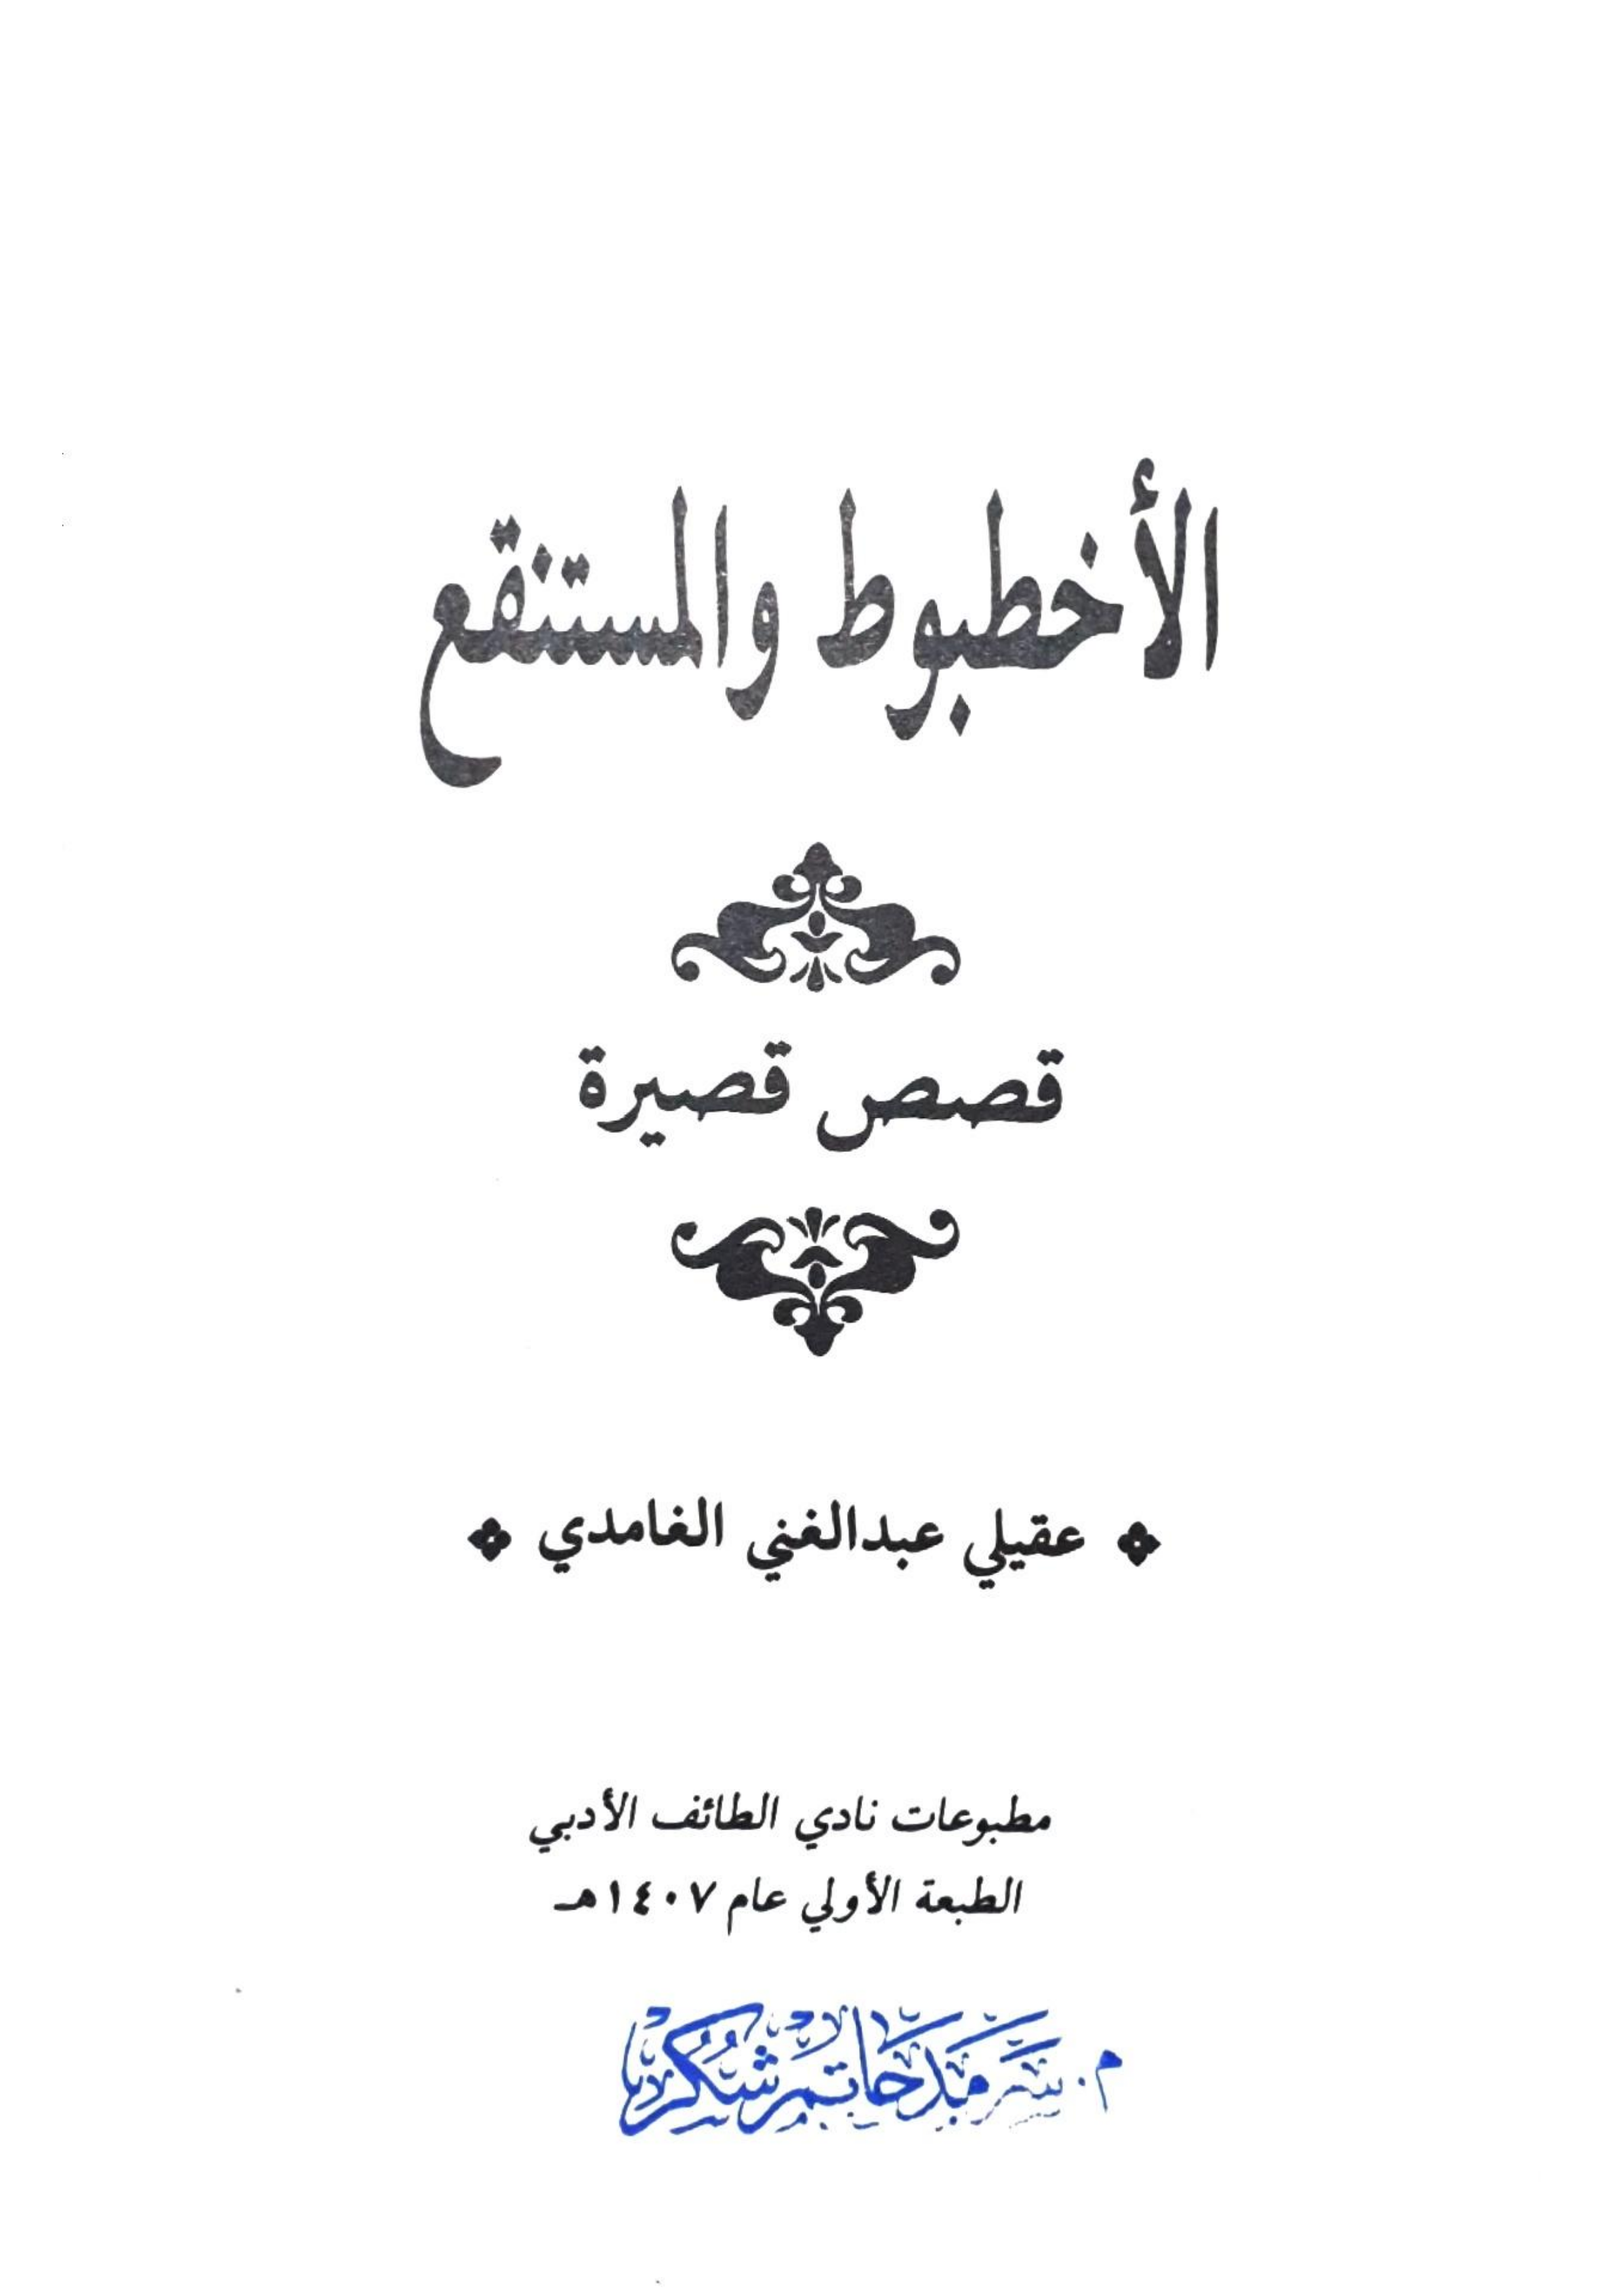 الأخطبوط والمستنقع
قصص قصيرة
عقيلي عبدالغني الغامدي
مطبوعات نادي الطائف الأدبي
الطبعة الأولي عام ١٤٠٧هـ
م. سَرمَد حَاتم شُكر